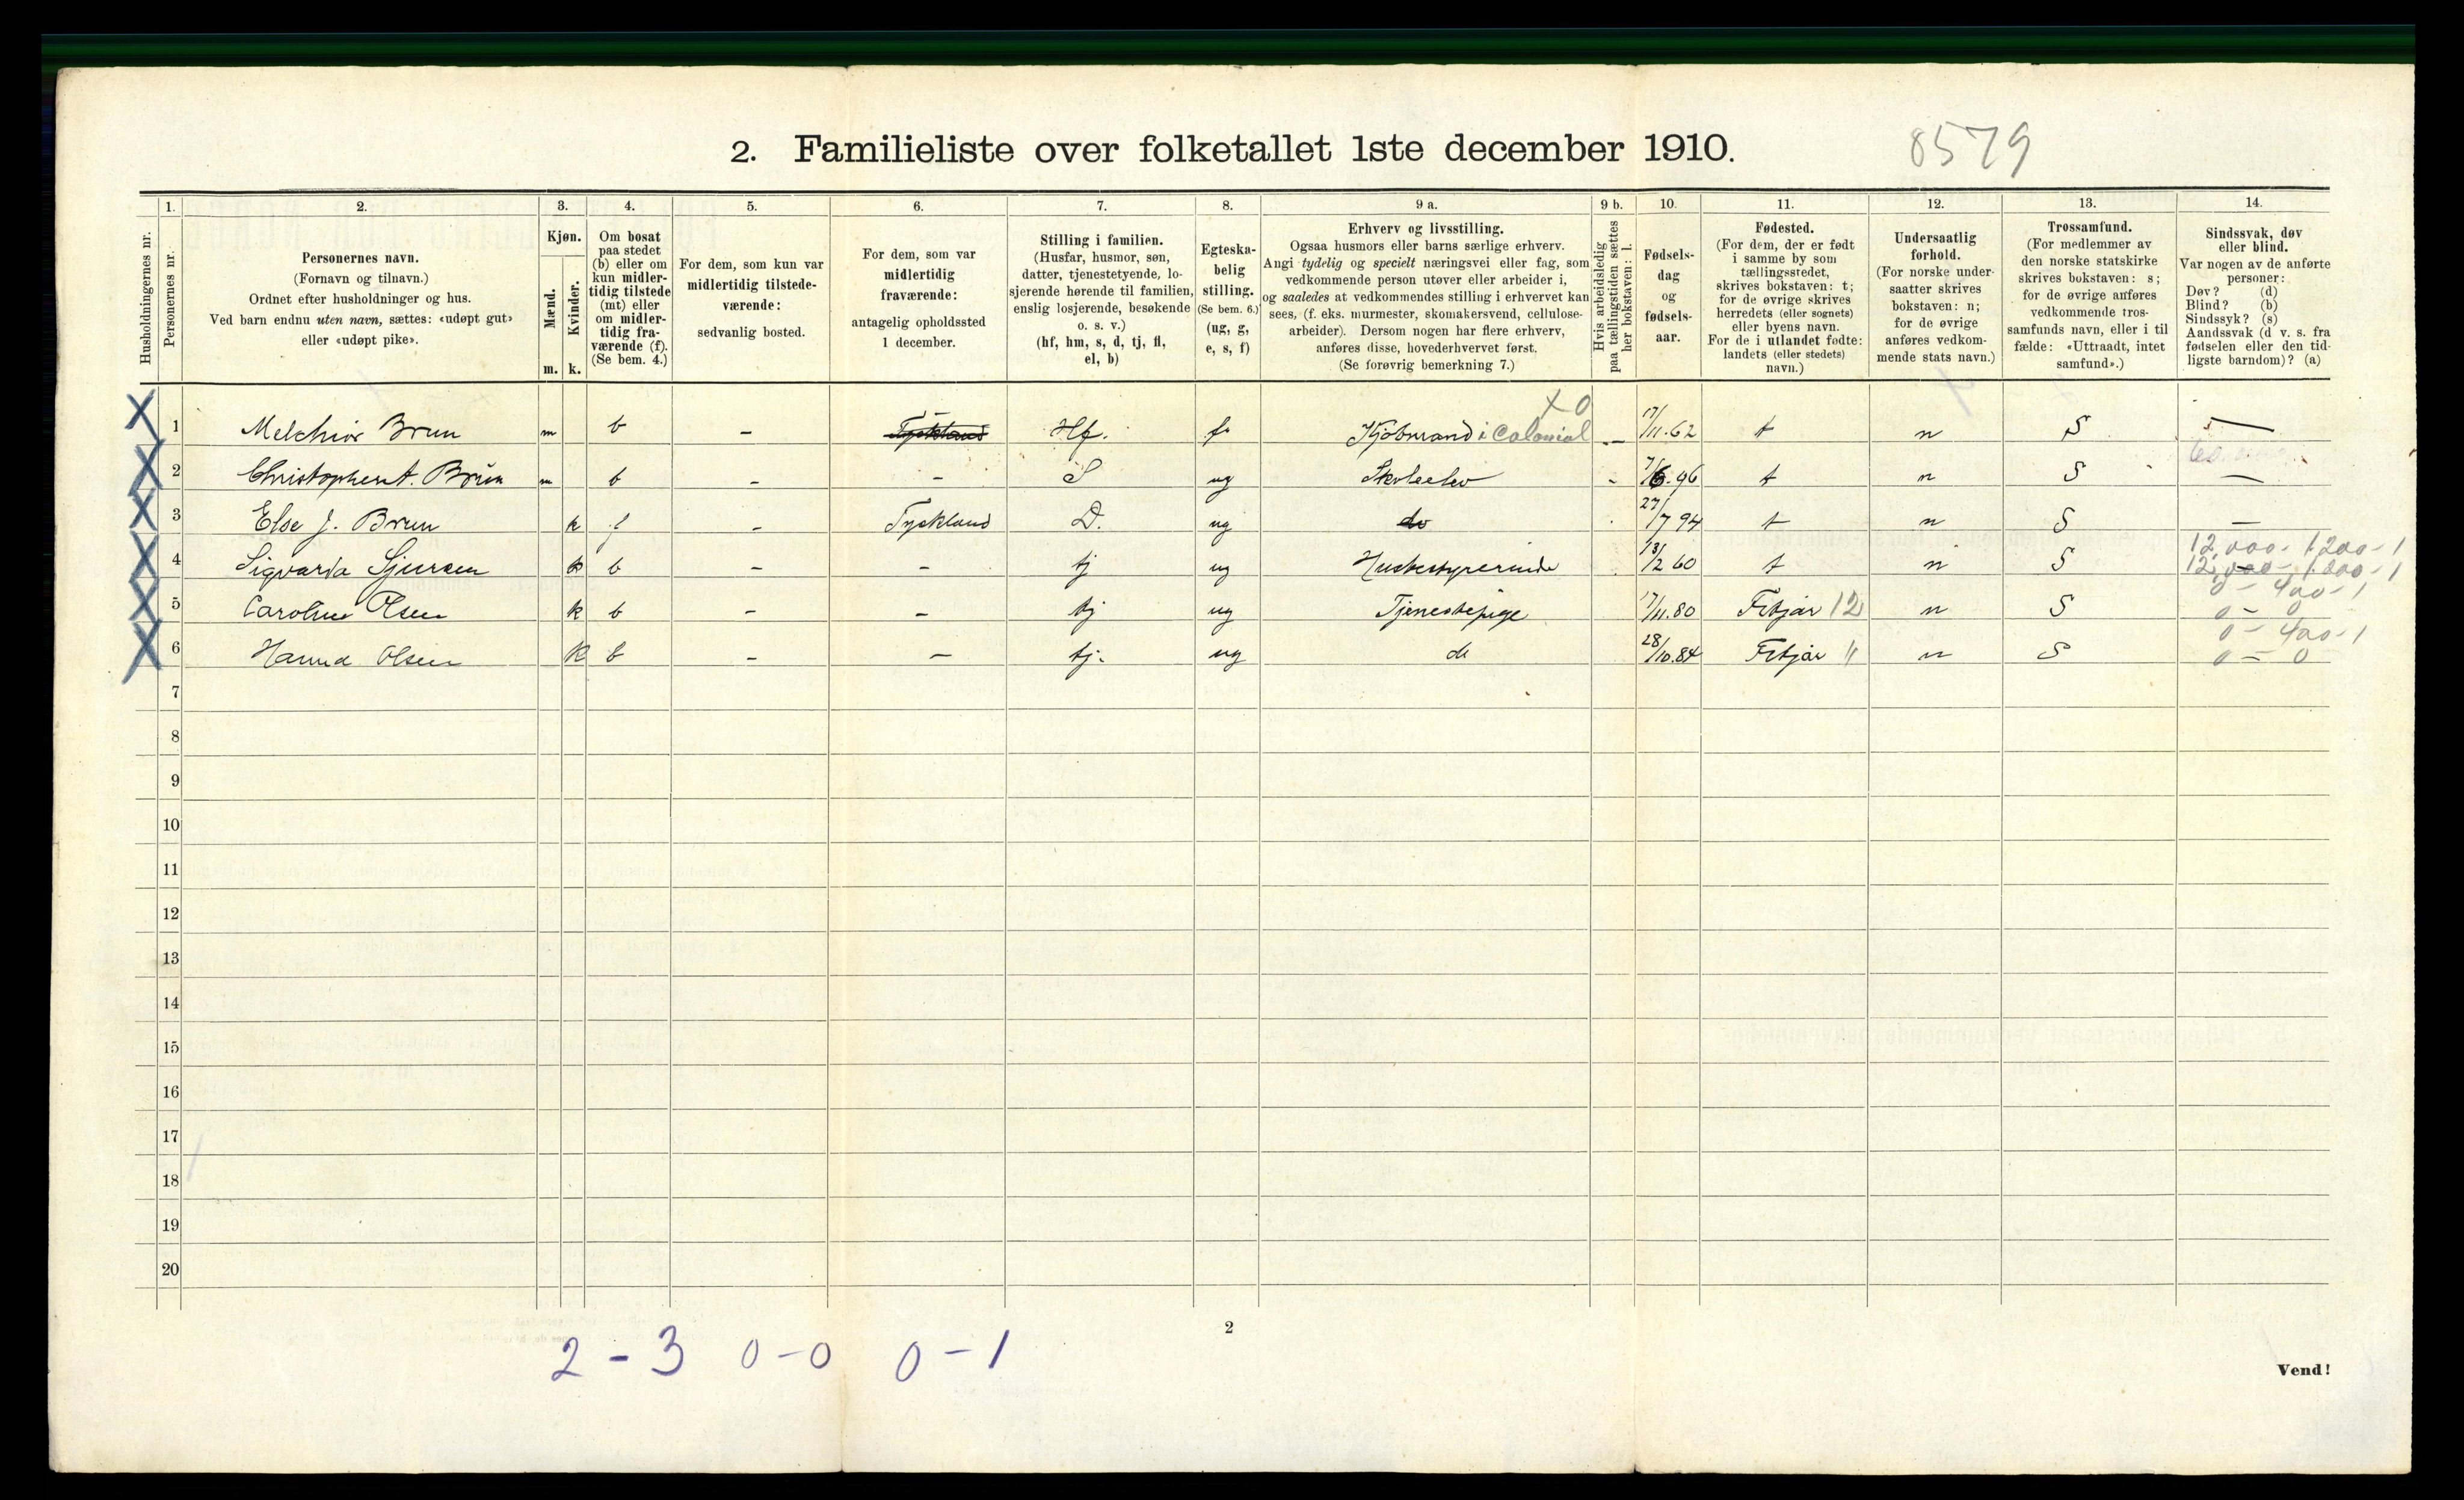 2. Familieliste over folketallet 1ste december 1910.
8579
1. 2. 3. 4. 5. 6. 7. 8. 9 a. 9 b. 10. 11. 12. 13. 14.
Husholdningernes nr.
Personernes nr.
Personernes navn.
(Fornavn og tilnavn.)
Ordnet efter husholdninger og hus.
Ved barn endnu uten navn, sættes: «udøpt gut»
eller «udøpt pike».
Kjøn.
Mænd.
Kvinder.
m. k.
Om bosat
paa stedet
(b) eller om
kun midler-
tidig tilstede
(mt) eller
om midler-
tidig fra-
værende (f).
(Se bem. 4.)
For dem, som kun var
midlertidig tilstede-
værende:
sedvanlig bosted.
For dem, som var
midlertidig
fraværende:
antagelig opholdssted
1 december.
Stilling i familien.
(Husfar, husmor, søn,
datter, tjenestetyende, lo-
sjerende hørende til familien,
enslig losjerende, besøkende
o. s. v.)
(hf, hm, s, d, tj, fl,
el, b)
Egteska-
belig
stilling.
(Se bem. 6.)
(ug, g,
e, s, f)
Erhverv og livsstilling.
Ogsaa husmors eller barns særlige erhverv.
Angi tydelig og specielt næringsvei eller fag, som
vedkommende person utøver eller arbeider i,
og saaledes at vedkommendes stilling i erhvervet kan
sees, (f. eks. murmester, skomakersvend, cellulose-
arbeider). Dersom nogen har flere erhverv,
anføres disse, hovederhvervet først.
(Se forøvrig bemerkning 7.)
Hvis arbeidsledig
paa tællingstiden sættes
her bokstaven: l.
Fødsels-
dag
og
fødsels-
aar.
Fødested.
(For dem, der er født
i samme by som
tællingsstedet,
skrives bokstaven: t;
for de øvrige skrives
herredets (eller sognets)
eller byens navn.
For de i utlandet fødte:
landets (eller stedets)
navn.)
Undersaatlig
forhold.
(For norske under-
saatter skrives
bokstaven: n;
for de øvrige
anføres vedkom-
mende stats navn.)
Trossamfund.
(For medlemmer av
den norske statskirke
skrives bokstaven: s;
for de øvrige anføres
vedkommende tros-
samfunds navn, eller i til
fælde: «Uttraadt, intet
samfund».)
Sindssvak, døv
eller blind.
Var nogen av de anførte
personer:
Døv? (d)
Blind? (b)
Sindssyk? (s)
Aandssvak (d v. s. fra
fødselen eller den tid-
ligste barndom)? (a)
X 0
X 1 Melchior Brun m b - Tyskland Hf. f. Kjøbmand i Colonial - 17/11.62 t n S -
X 2 Christopher A. Brun m b - - S ug Skoleelev - 7/6.96 t n S -
X 3 Else J. Brun k f - Tyskland D. ug do 27/7 94 t n S -
12,000-1200-1
X 4 Sigvarda Sjursen k b - - tj ug Husbestyrerinde 13/2 60 t n S 12,000-1200-1
0-400-1
X 5 Caroline Olsen k b - - tj ug Tjenestepige 17/11.80 Fitjar 12 n S 0-0
0-400-1
X 6 Hanna Olsen k b - - tj. ug do 28/10.84 Fitjar 11 n S 0-0
7
8
9
10
11
12
13
14
15
16
17
18
19
20
2
2-3 0-0 0-1
Vend!